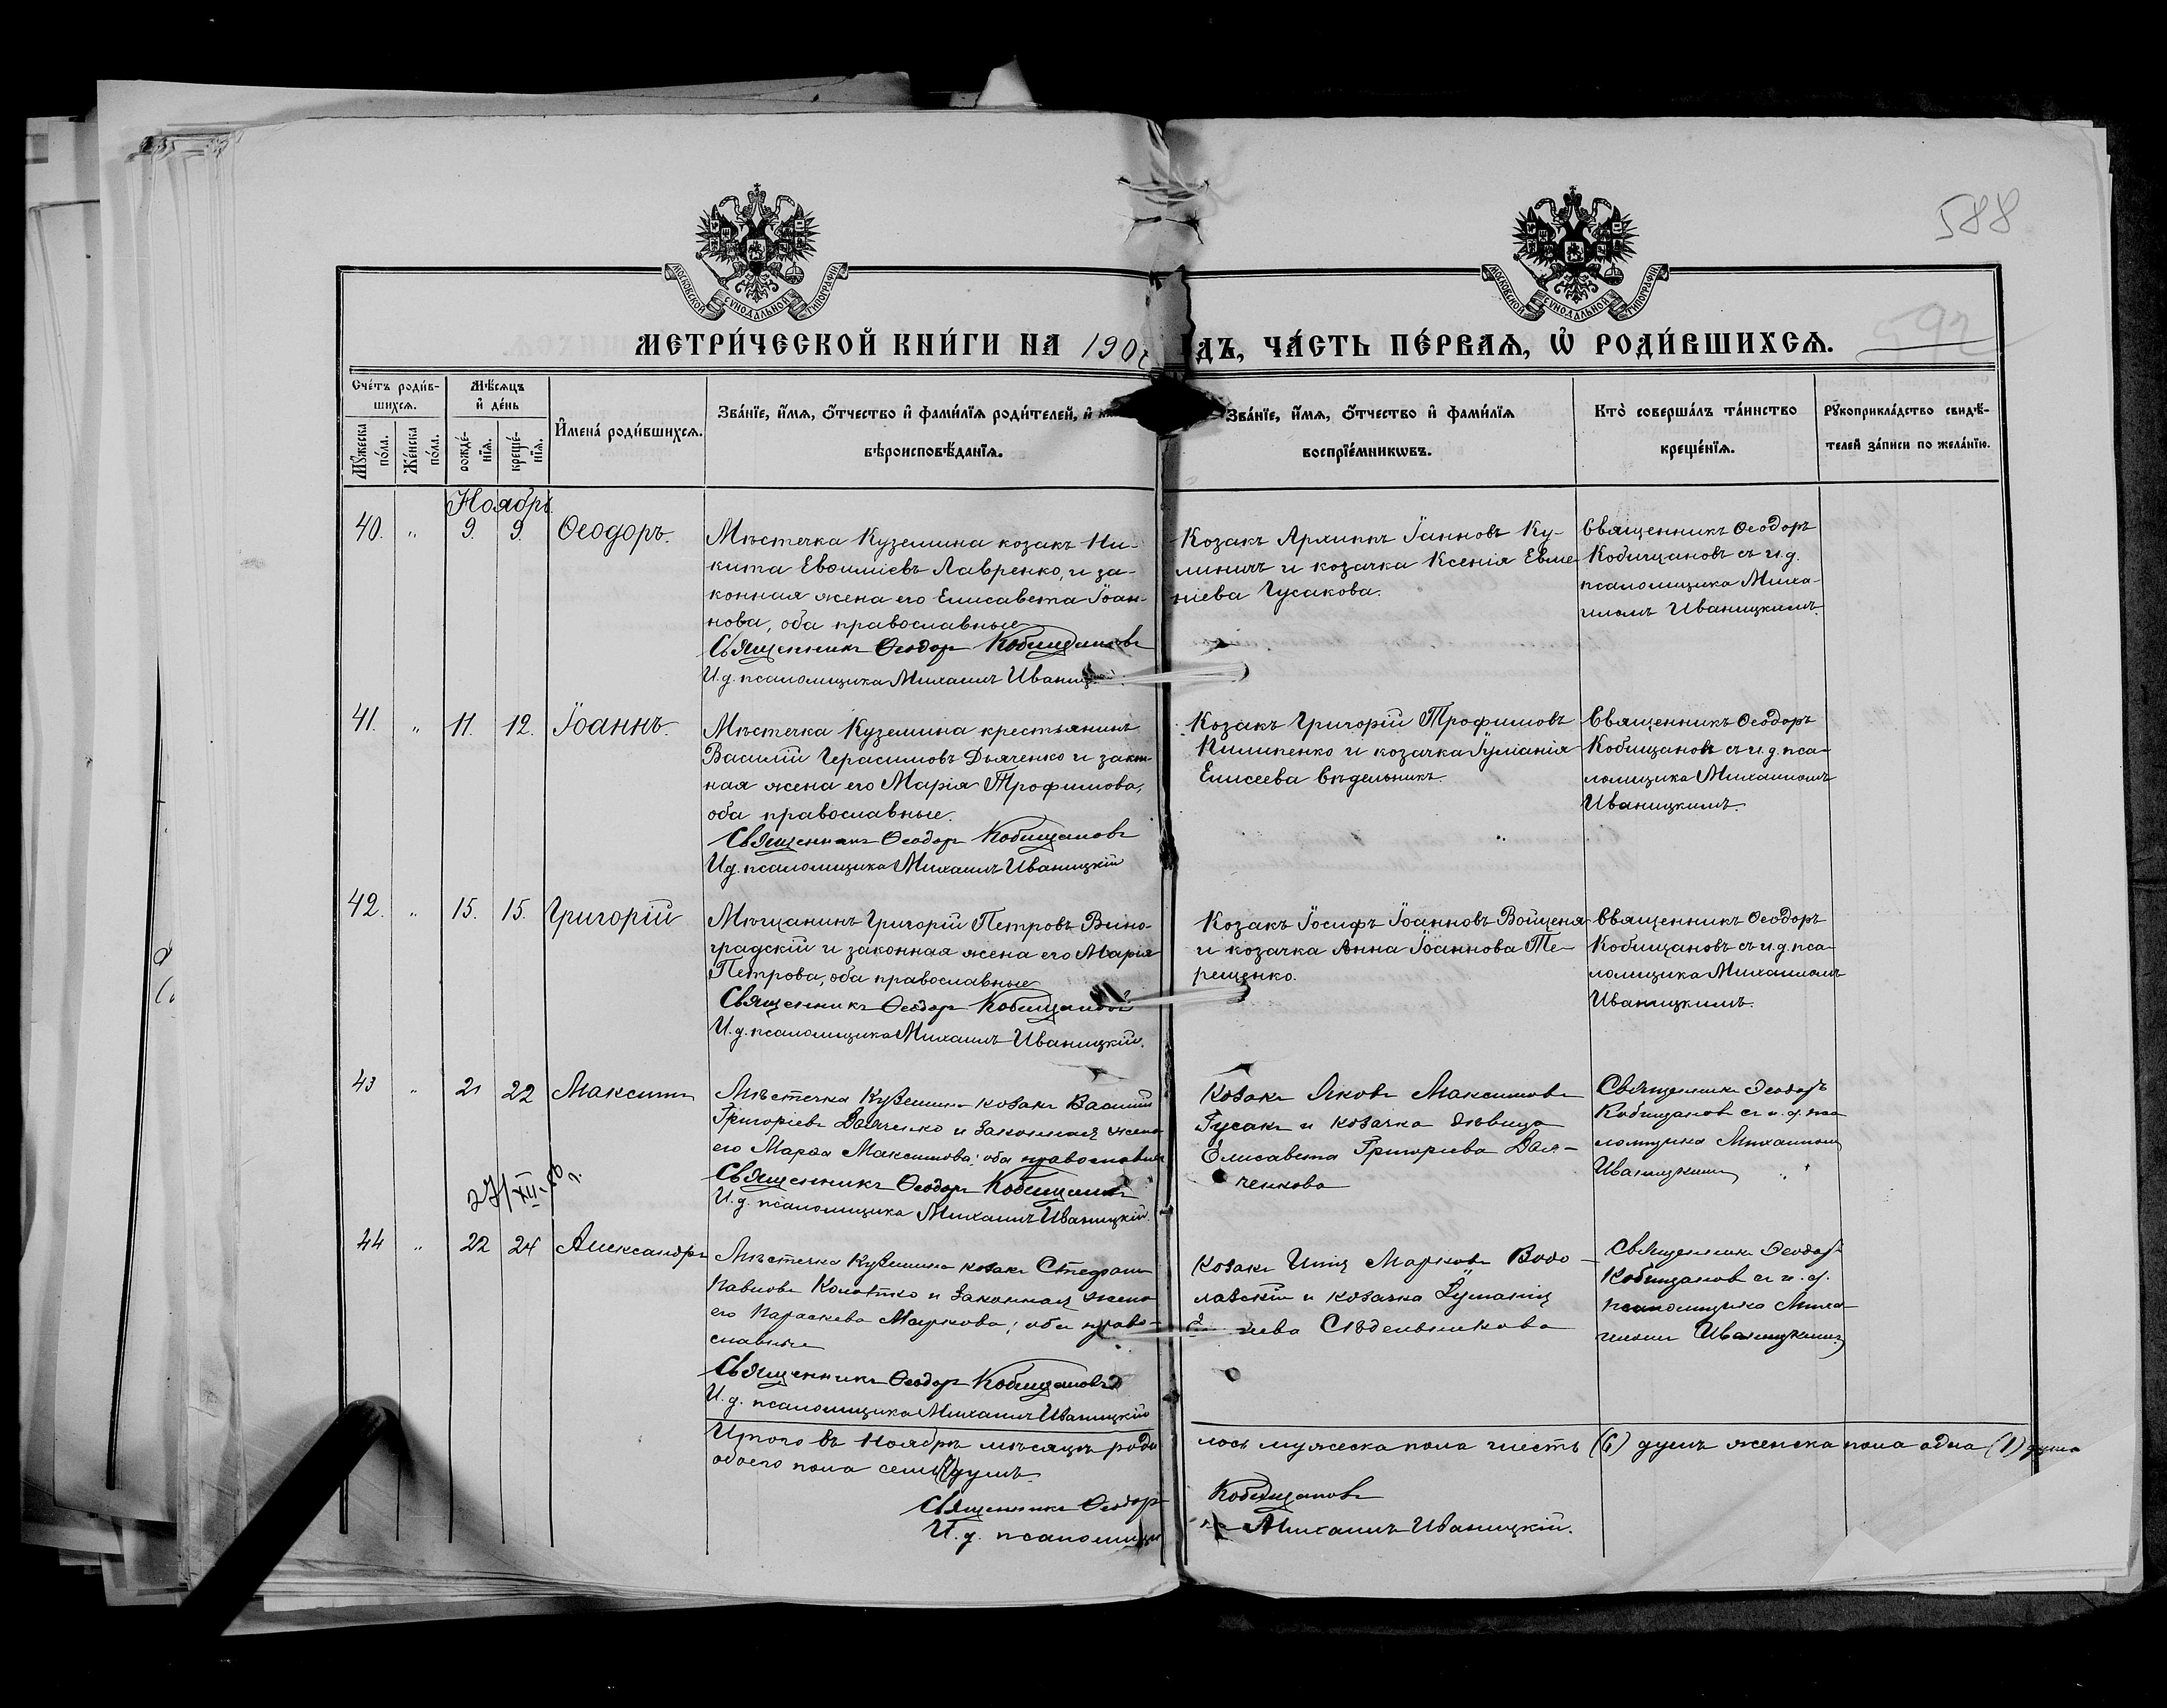 588
МОСКОВСКОЙ СѴНОДАЛЬНОЙ ТИПОГРАФІИ
МОСКОВСКОЙ СѴНОДАЛЬНОЙ ТИПОГРАФІИ
МЕТРИ́ЧЕСКОЙ КНИ́ГИ НА 190 ДЪ, ЧА́СТЬ ПЕ́РВАѦ, Ѡ҆ РОДИ́ВШИХСѦ.
592
Сче́тъ роди́в-
шихсѧ.
Мꙋ́жеска по́ла.
Же́нска по́ла.
Мѣ́сѧцъ
и҆ де́нь
рожде́-
нїѧ.
креще́-
нїѧ.
И҆мена̀ роди́вшихсѧ.
Зва́нїе, и҆́мѧ, ѻ҆́тчество и҆ фами́лїѧ роди́телей, и҆
вѣроисповѣ́данїѧ.
Зва́нїе, и҆́мѧ, ѻ҆́тчество и҆ фами́лїѧ
воспрїе́мникѡвъ.
Кто̀ соверша́лъ та́инство
креще́нїѧ.
Рꙋкоприкла́дство свидѣ́-
телей за́писи по жела́нїю.
Ноябрь
40. " 9. 9. Ѳеодоръ.
Мѣстечка Куземина козакъ Ни-
кита Евѳиміевъ Лавренко, и за-
конная жена его Елисавета Іоан-
нова, оба православные
Священникъ Ѳеодоръ Кобищановъ
И.д. псаломщика Михаилъ Иваницкій.
Козакъ Архиппъ Іанновъ Ку-
линичъ и козачка Ксенія Евме-
ніева Гусакова.
Священникъ Ѳеодоръ
Кобищановъ съ и.д.
псаломщика Миха-
иломъ Иваницкимъ.
41. " 11. 12. Іоаннъ.
Мѣстечка Куземина крестьянинъ
Василій Герасимовъ Дьяченко и закон-
ная жена его Марія Трофимова,
оба православные.
Священникъ Ѳеодоръ Кобищановъ
И.д. псаломщика Михаилъ Иваницкій
Козакъ Григорій Трофимовъ
Пилипенко и козачка Іуліанія
Елисеева Сѣдельникъ.
Священникъ Ѳеодоръ
Кобищановъ съ и.д. пса-
ломщика Михаиломъ
Иваницкимъ.
42. " 15. 15. Григорій
Мѣщанинъ Григорій Петровъ Вино-
градскій и законная жена его Марія
Петрова, оба православные
Священникъ Ѳеодоръ Кобищановъ
И.д. псаломщика Михаилъ Иваницкій.
Козакъ Іосифъ Іоанновъ Войценя
и козачка Анна Іоаннова Те-
рещенко.
Священникъ Ѳеодоръ
Кобищановъ съ и.д. пса-
ломщика Михаиломъ
Иваницкимъ.
43 " 21 22 Максимъ
Мѣстечка Куземина козакъ Василій
Григоріевъ Дьяченко и законная жена
его Марѳа Максимова; оба православные
Священникъ Ѳеодоръ Кобищановъ
И.д. псаломщика Михаилъ Иваницкій.
27/XII-80 г.
Козакъ Яковъ Максимовъ
Гусакъ и козачка дѣвица
Елисавета Григорьева Дья-
ченкова
Священникъ Ѳеодоръ
Кобищановъ съ и.д. пса
ломщика Михаиломъ
Иваницкимъ
44 " 22 24 Александръ
Мѣстечка Куземина козакъ Стефанъ
Павловъ и законная жена
его Параскева Маркова; оба право-
славные
Священникъ Ѳеодоръ Кобищановъ
И.д. псаломщика Михаилъ Иваницкій
Козакъ Марковъ Водо-
лазскій и козачка Іуліанія
Сѣдельникова
Священникъ Ѳеодоръ
Кобищановъ съ и.д.
псаломщика Миха-
иломъ Иваницкимъ
Итого въ Ноябрѣ мѣсяцѣ роди лось мужеска пола шесть (6) душъ женска пола одна (1) душа
обоего пола семь (7) душъ.
Священникъ Ѳеодоръ Кобищановъ
И.д. псаломщи Михаилъ Иваницкій.